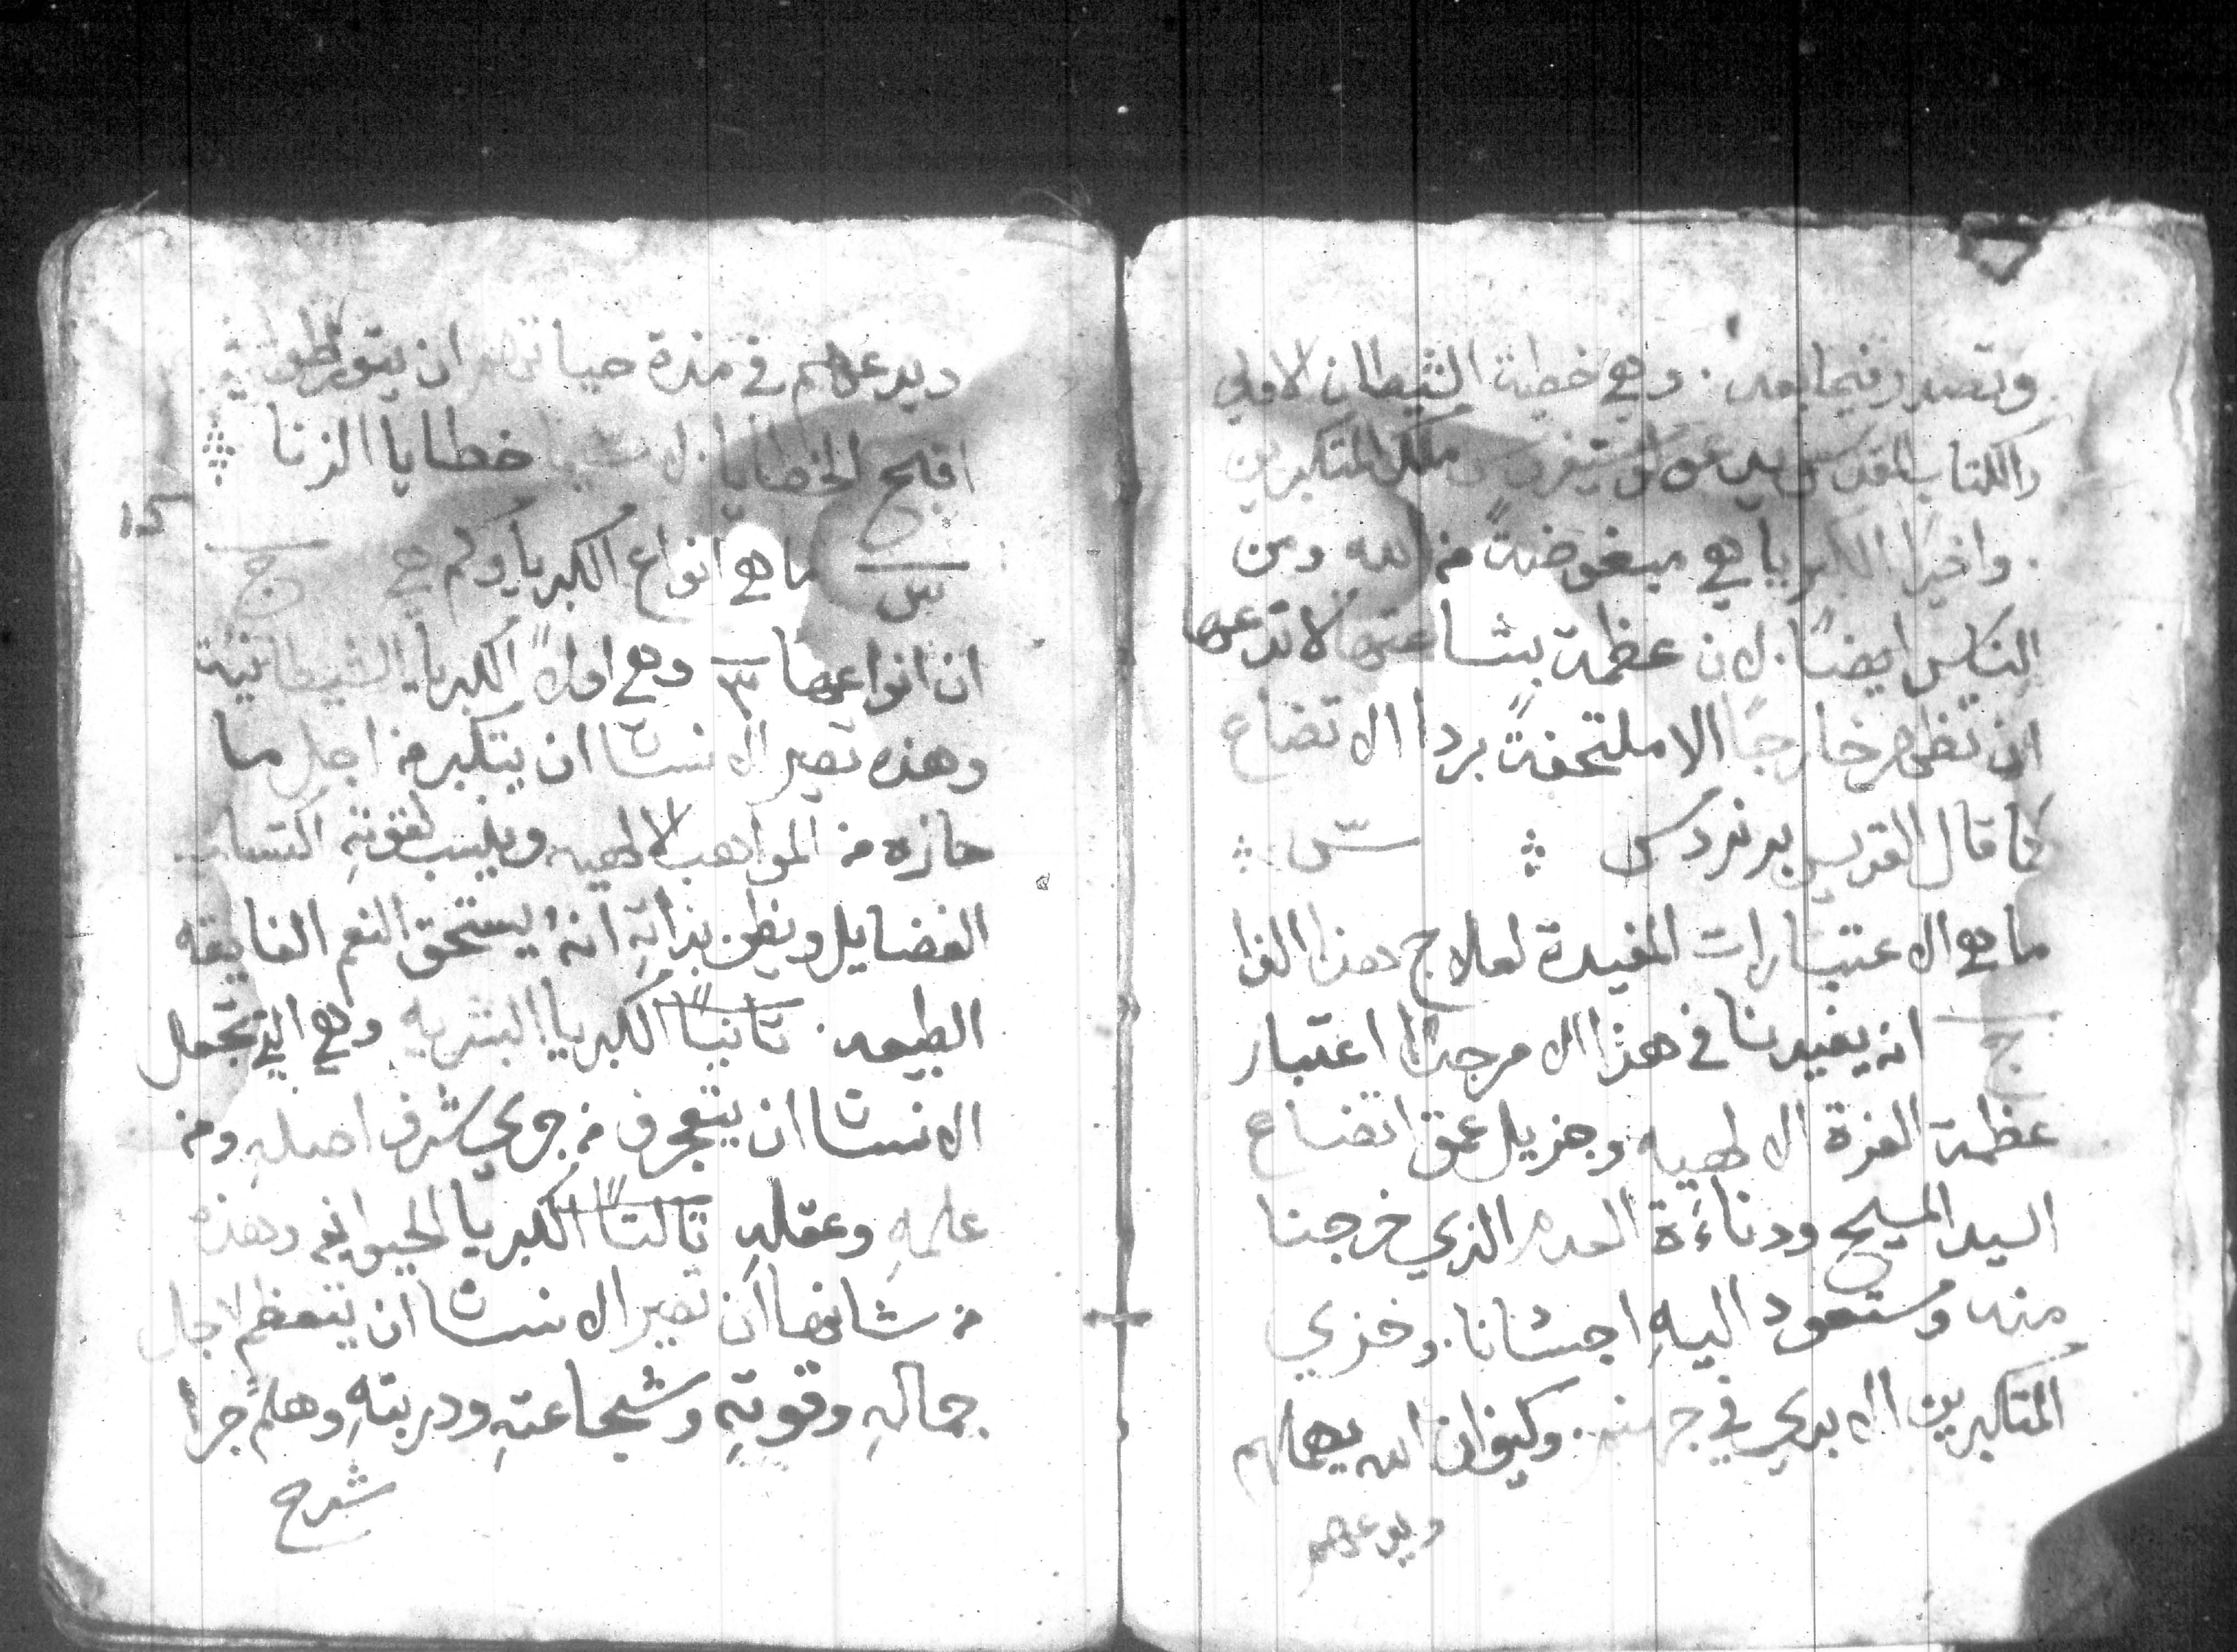 وتصدر فيما بعد. وهي خطية الشيطان الاولي
والكتاب المقدس يدعو لوسيفورس ملك المتكبرين
. واخيرًا الكبريا هي مبغوضةً من الله ومن
الناس ايضًا. لان عظمة بشاعتها لا تدعها
ان تظهر خارجًا الا ملتحفةً بردا الاتضاع
كما قال القديس برنردس ؞ س ؞
ما هي الاعتبارات المفيدة لعلاج هذا الدا
ج انه يفيدنا في هذا الامر جدًا اعتبار
عظمة العزة الالهيه وجزيل عمق اتضاع
السيد المسيح ودناءَة العدم الذي خرجنا
منه وستعود اليهِ اجسانا. وخزي
المتكبرين الابدي في جهنم. وكيف ان الله يهملهم
ويدعهم
ويدعهم في مدة حياتهم ان يتورطوا في
اقبح الخطايا خطايا الزنا ؞
١٥
س ما هي انواع الكبريا وكم هي ج
ان انواعها ٣ وهي اولاً الكبريا الشيطانية
وهذه تصير الانسان ان يتكبر من اجل ما
حازه من المواهب الالهيه وينسب لقوتهِ اكتساب
الفضايل ويظن بذاتهِ انهُ يستحق النعم الفايقه
الطبيعه. ثانيًا الكبريا البشريه وهي التي تجعل
الانسان ان يتعجرف من جري شرف اصلهِ ومن
علمهِ وعقلهِ ثالثًا الكبريا الحيوانيه وهذه
من شانها ان تصير الانسان ان يتعظم لاجل
جمالهِ وقوتهِ وشجاعتهِ ودربتهِ وهلم جرا
شرح